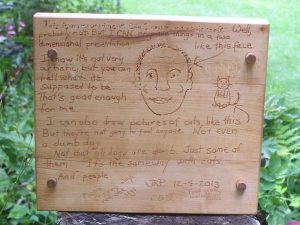 probably not. But I CAN do some things in a two
dimensional presentation, like this face.
I know it's not very
artistic, but you can
tell what it's
supposed to be.
That's good enough
for me.
I can also draw pictures of cats like this.
But they're not going to fool anyone. Not even
a dumb dog.
Not that all dogs are dumb. Just some of
them. It's the same way with cats.
And people.
JRP 12-4-2013